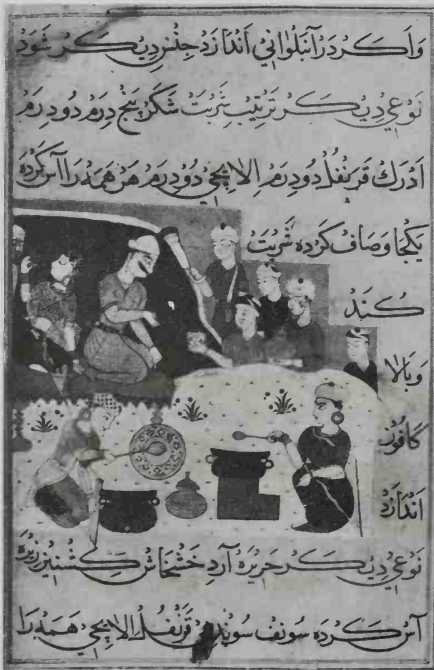 واكر در آنبلواني اندازد جنس ديكر شود
نوعي ديكر ترتيب شربت شكر پنج درم دو درم
ادرك قرنفل دو درم الايچي دو درم هر همه را آس كرده
يكجا وصاف كرده شربت
كنند
وبالا
كافور
اندازد
نوعي ديكر حريره آرد خشخاش كشنيز زيره
آس كرده سونف قرنفل الايچي همه را